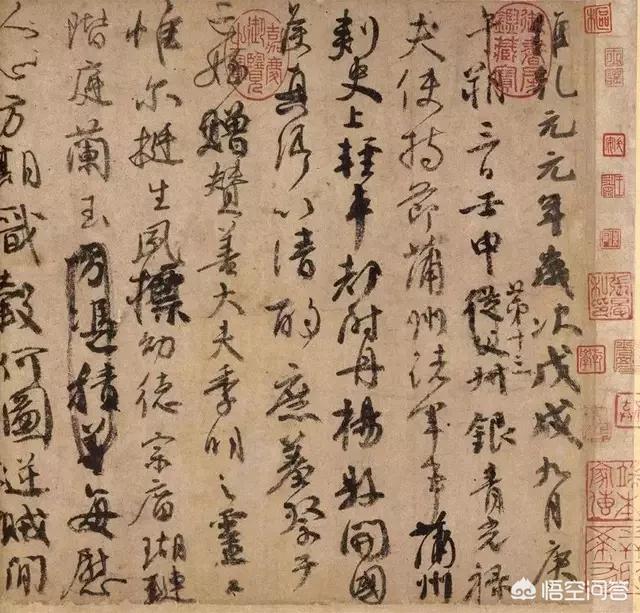 維乾元元年歲次戊戌九月庚
午朔三日壬申第十三從父叔銀青光祿
夫使持節蒲州諸軍事蒲州
刺史上輕車都尉丹楊縣開國
侯真卿以清酌庶羞祭于
亡姪贈贊善大夫季明之靈曰
惟爾挺生夙標幼德宗廟瑚璉
階庭蘭玉方憑積善每慰
人心方期戩穀何圖逆賊間
嘉慶御覽之寶
悟空问答